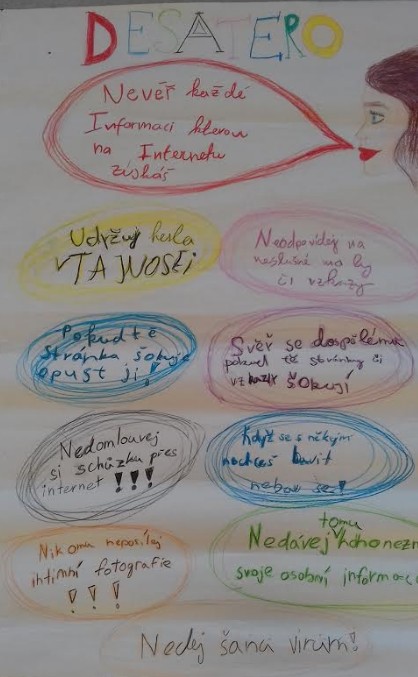 DESATERO
Nevěř každé
Informaci kterou
na Internetu
získáš
Udržuj hesla
v TAJNOSEI
Neodpovídej na
neslušné maily
či vzkazy
Pokud tě
stránka šokuje
opusť ji!
Svěř se dospělému
pokud tě stránky či
vzkazy šokují
Nedomlouvej
si schůzku přes
internet !!!
Když se s někým
nechceš bavit
nebav se!
Nikomu neposílej
intimní fotografie
! ! !
tomu
Nedávej koho nezn
svoje osobní informac
Nedej šanci virům!